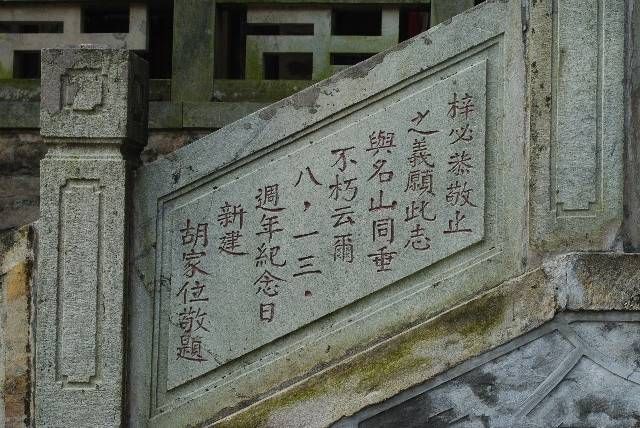 梓必恭敬止
之義願此志
與名山同垂
不朽云爾
八·一三·
週年紀念日
新建
胡家位敬題